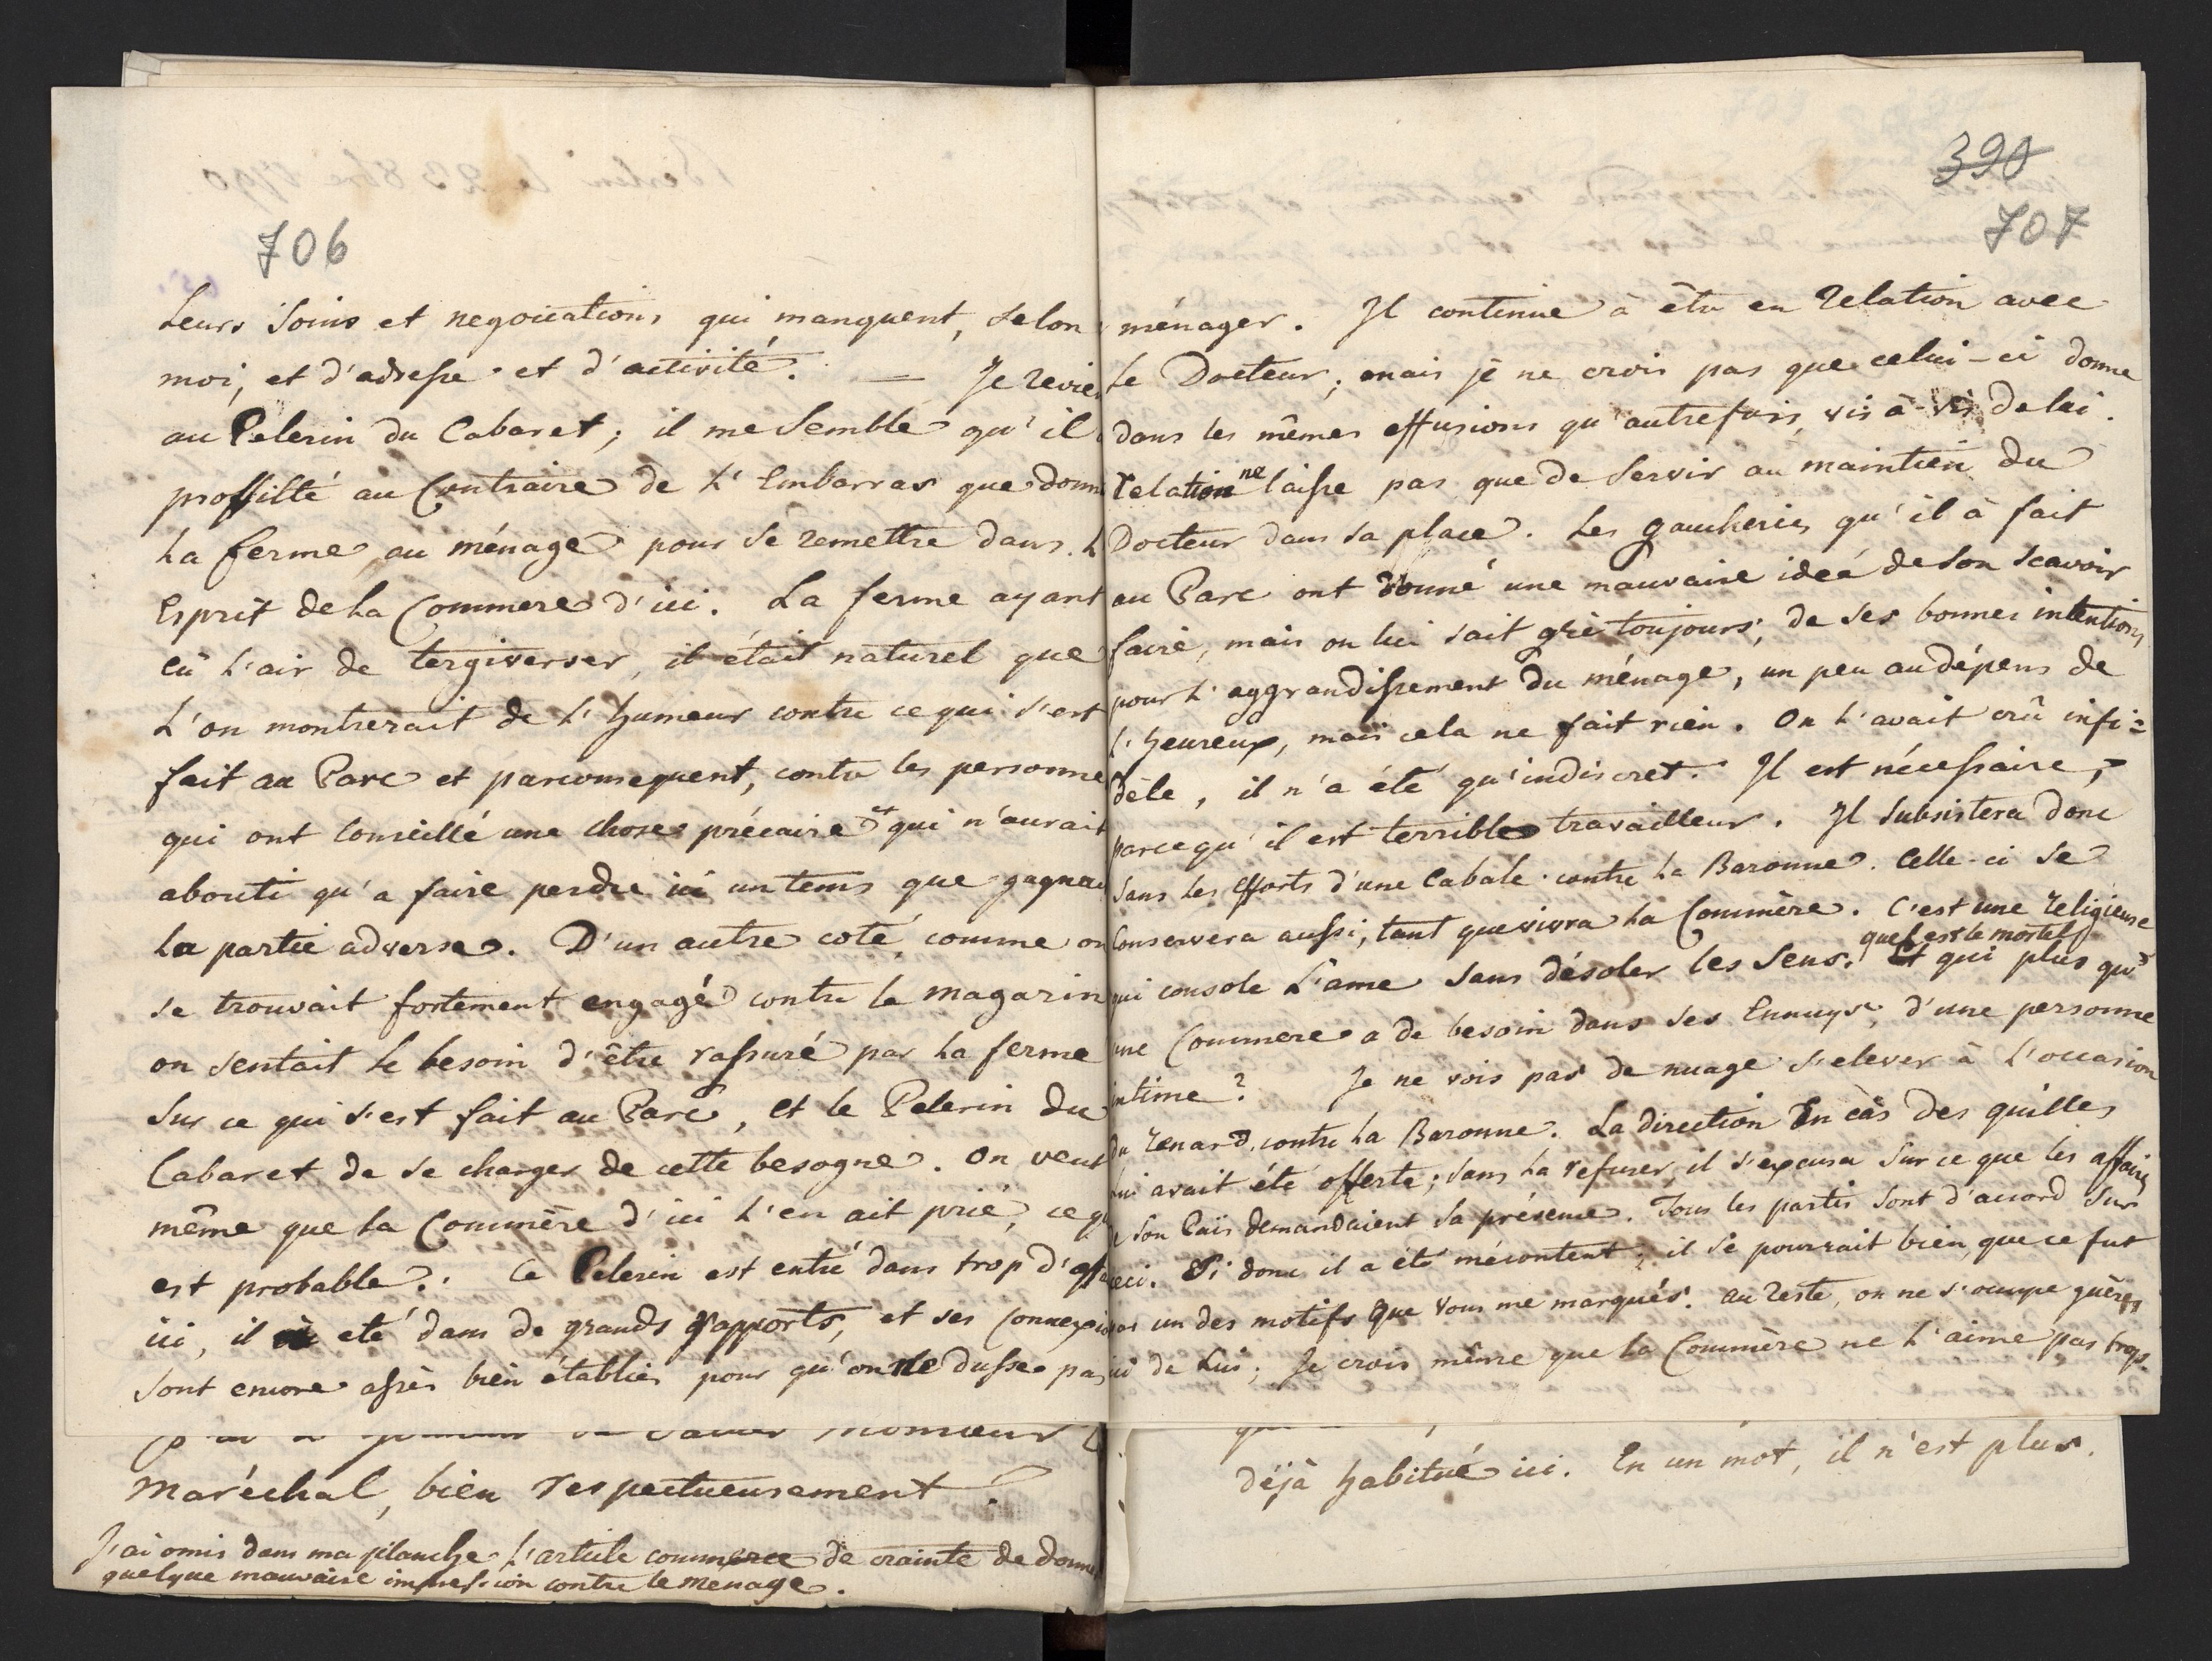 706
Leurs Soins et negociations qui manquent, selon
moi, et d'adresse et d'activité. — Je revie
au Pelerin du Cabaret; il me semble qu'il
proffitté au Contraire de L'Embarras que donn
La ferme au ménage pour se remettre dans L
Esprit de La Commere d'ici. La ferme ayant
eû L'air de tergiverser, il était naturel que
L'on montrerait de L'humeur contre ce qui s'est
fait au Parc et parconsequent, contre les personne
qui ont Conseillé une chose précaire et qui n'aurait
abouti qu'a faire perdre ici un tems que gagner
La partie adverse. D'un autre coté, comme on
se trouvait fortement engagé contre le magazin
on sentait Le besoin d'être rassuré par La ferme
Sur ce qui s'est fait au Parc, et le Pelerin du
Cabaret de se charger de cette besogne. On veut
même que La Commère d'ici L'en ait prié, ce q
est probable. Ce Pelerin est entré dans trop d'aff
ici, il a eté dans de grands rapports, et ses Connexio
Sont encore assès bien établies pour qu'on ne dusse pas
Maréchal, bien respectueusement.
J'ai omis dans ma planche L'article commerce de crainte de donne
quelque mauvaise impression contre le menage.
390
707
ménager. Il continue à être en relation avec
Le Docteur; mais je ne crois pas que celui-ci donne
dans les mêmes effusions qu'autrefois, vis à-vis de lui.
relation ne laisse pas que de Servir au maintien du
Docteur dans sa place. Les gaucheries qu'il à fait
au Parc ont donné une mauvaise idée de son Scavoir
faire, mais on lui sait gré toujours, de ses bonnes intentions
pour L'aggrandissement du ménage, un peu au dépens de
L'heureux, mais cela ne fait rien. On L'avait crû infi=
dèle, il n'a été qu'indiscret. Il est nécessaire,
parcequ'il est terrible travailleur. Il Subsistera donc
Sans les efforts d'une Cabale contre La Baronne. Celle-ci se
Conservera aussi, tant que vivra La Commère. C'est une religieuse
qui console L'ame sans désoler les Sens. quel est le mortel Et qui plus qu'
une Commere a de besoin dans ses Ennuys, d'une personne
intime? Je ne vois pas de nuage s'elever à L'occasion
du renard contre La Baronne. La direction En cas des quilles
Lui avait été offerte; sans La refuser, il s'excusa Sur ce que les affaires
de son Païs demandaient sa présence. Tous les partis sont d'accord sur
ceci. Si donc il a été mécontent, il se pourrait bien, que ce fut
pas un des motifs que vous me marqués. au reste, on ne s'occupe guères
ici de Lui; Je crois même que La Commère ne L'aime pas trop.
déjà habitué ici. En un mot, il n'est plus.